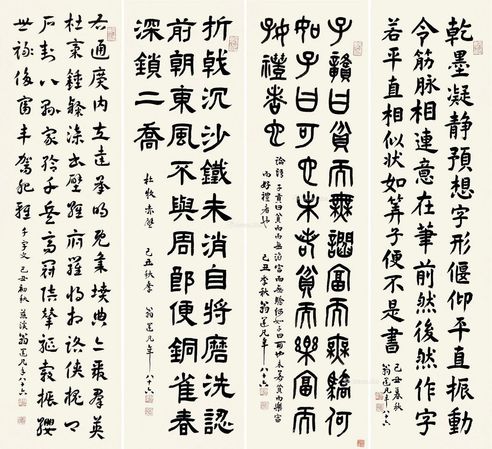 乾墨凝静預想字形偃仰平直振動
令筋脉相連意在筆前然後然作字
若平直相似状如筭子便不是書
己丑暮秋
翁 年八十六
子贛曰貧而無讇富而無驕何
如子曰可也未若貧而樂富而
好禮者也
論語 子貢曰貧而無諂富而無驕何如子曰可也未若貧而樂富
而好禮者也 己丑季秋 翁 年八十六
折戟沉沙鐵未消自將磨洗認
前朝東風不與周郎便銅雀春
深鎖二喬
杜牧赤壁 己丑秋季 翁 年八十六
右通廣内左達承明既集墳典亦聚群英
杜稾鍾隸漆書壁經府羅將相路俠槐卿
户封八縣家給千兵高冠陪輦驅轂振纓
世禄侈富車駕肥輕 千字文 己丑初秋 慈溪翁 年八十六